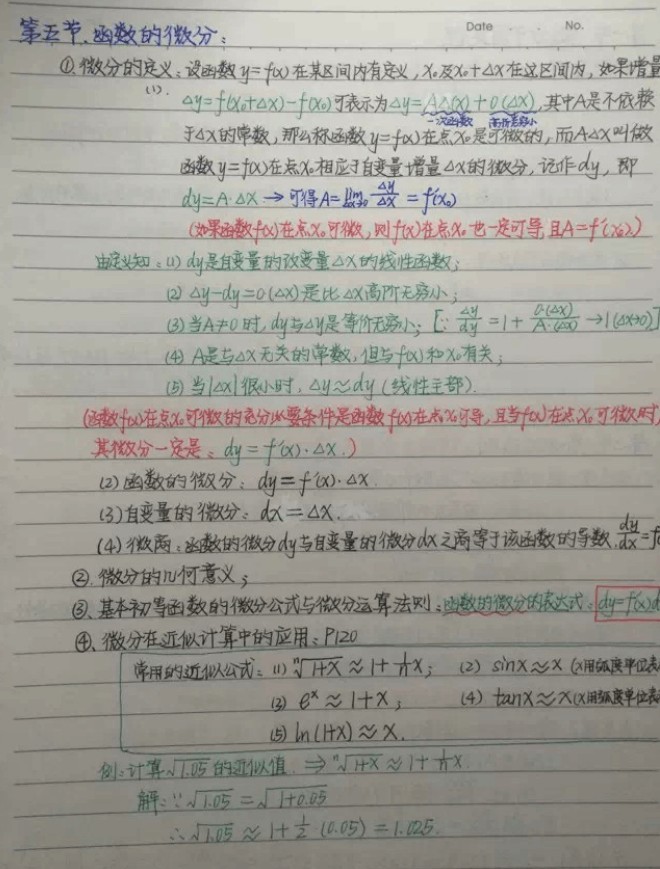 Date No.
第五节.函数的微分:
①.微分的定义:设函数y=f(x)在某区间内有定义,x₀及x₀+Δx在这区间内,如果增量
(1).
Δy=f(x₀+Δx)-f(x₀)可表示为Δy=AΔ(x)+o(Δx),其中A是不依赖
一次函数 高阶无穷小
于Δx的常数,那么称函数y=f(x)在点x₀是可微的,而AΔx叫做
函数y=f(x)在点x₀相应于自变量增量Δx的微分,记作dy,即
dy=A·Δx → 可得A=lim Δx→0 Δy/Δx = f'(x₀)
(如果函数f(x)在点x₀可微,则f(x)在点x₀也一定可导,且A=f'(x₀).)
由定义知:(1) dy是自变量的改变量Δx的线性函数;
(2) Δy-dy=o(Δx)是比Δx高阶无穷小;
(3) 当A≠0时,dy与Δy是等价无穷小; [∵ Δy/dy = 1 + o(Δx)/A·(Δx) → 1 (Δx→0)]
(4) A是与Δx无关的常数,但与f(x)和x₀有关;
(5) 当|Δx|很小时,Δy≈dy(线性主部).
(函数f(x)在点x₀可微的充分必要条件是函数f(x)在点x₀可导,且当f(x)在点x₀可微时,
其微分一定是:dy=f'(x)·Δx.)
(2) 函数的微分: dy=f'(x)·Δx.
(3) 自变量的微分: dx=Δx.
(4) 微商:函数的微分dy与自变量的微分dx之商等于该函数的导数. dy/dx=f
②.微分的几何意义;
③.基本初等函数的微分公式与微分运算法则:函数的微分的表达式:dy=f'(x)d
④.微分在近似计算中的应用:P120
常用的近似公式:(1) ⁿ√1+x ≈ 1+1/n x; (2) sinx≈x (x用弧度单位表
(3) eˣ≈1+x; (4) tanx≈x(x用弧度单位表
(5) ln(1+x)≈x.
例:计算√1.05的近似值. ⇒ ⁿ√1+x ≈ 1+1/n x.
解:∵√1.05=√1+0.05
∴√1.05 ≈ 1+1/2·(0.05)=1.025.